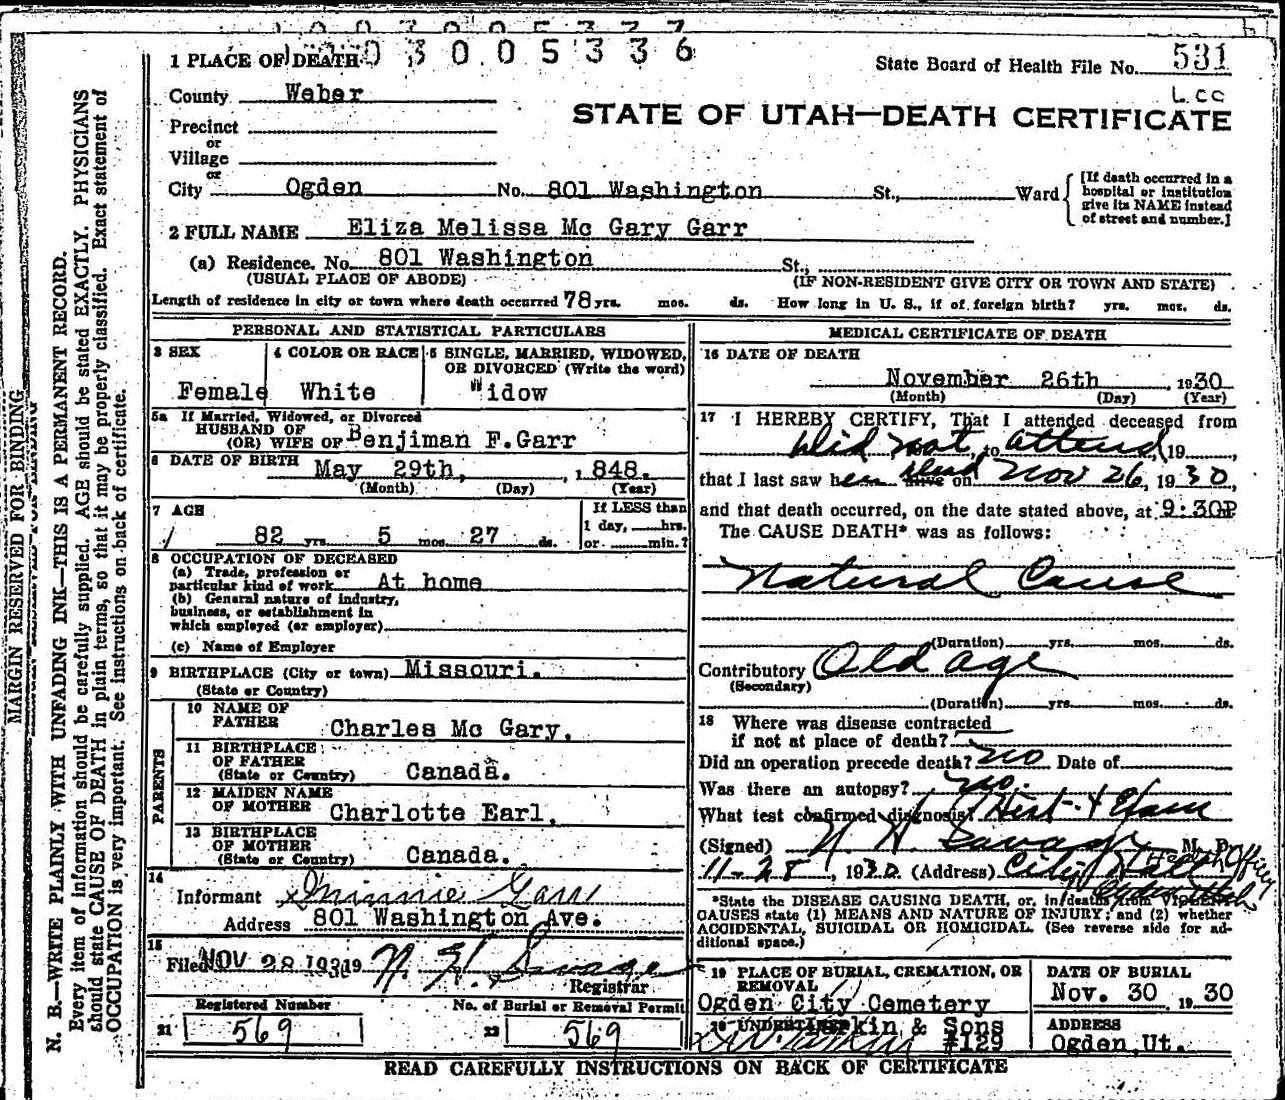 1003005336
1 PLACE OF DEATH
State Board of Health File No. 531
County Weber
L cc
STATE OF UTAH—DEATH CERTIFICATE
Precinct
or
Village
or
City Ogden No. 801 Washington St., Ward
[If death occurred in a
hospital or institution
give its NAME instead
of street and number.]
2 FULL NAME Eliza Melissa Mc Gary Garr
(a) Residence. No. 801 Washington St.,
(USUAL PLACE OF ABODE) (IF NON-RESIDENT GIVE CITY OR TOWN AND STATE)
Length of residence in city or town where death occurred 78 yrs. mos. ds. How long in U. S., if of foreign birth? yrs. mos. ds.
PERSONAL AND STATISTICAL PARTICULARS
3 SEX
Female
4 COLOR OR RACE
White
5 SINGLE, MARRIED, WIDOWED,
OR DIVORCED (Write the word)
Widow
5a If Married, Widowed, or Divorced
HUSBAND OF
(OR) WIFE OF Benjiman F.Garr
6 DATE OF BIRTH May 29th, 1848.
(Month) (Day) (Year)
7 AGE
82 yrs. 5 mos. 27 ds.
If LESS than
1 day, hrs.
or min.?
8 OCCUPATION OF DECEASED
(a) Trade, profession or
particular kind of work At home
(b) General nature of industry,
business, or establishment in
which employed (or employer)
(c) Name of Employer
9 BIRTHPLACE (City or town) Missouri.
(State or Country)
PARENTS
10 NAME OF
FATHER Charles Mc Gary.
11 BIRTHPLACE
OF FATHER
(State or Country) Canada.
12 MAIDEN NAME
OF MOTHER Charlotte Earl.
13 BIRTHPLACE
OF MOTHER
(State or Country) Canada.
14
Informant x Minnie Garr
Address 801 Washington Ave.
15
Filed NOV 28 1930 19 N. H. Savage
Registrar
Registered Number
21 569
No. of Burial or Removal Permit
22 569
MEDICAL CERTIFICATE OF DEATH
16 DATE OF DEATH
November 26th, 1930
(Month) (Day) (Year)
17 I HEREBY CERTIFY, That I attended deceased from
Did not, to attend, 19
that I last saw her alive on dead Nov 26, 1930,
and that death occurred, on the date stated above, at 9:30P
The CAUSE DEATH* was as follows:
Natural Cause
(Duration) yrs. mos. ds.
Contributory Old age
(Secondary)
(Duration) yrs. mos. ds.
18 Where was disease contracted
if not at place of death?
Did an operation precede death? no Date of
Was there an autopsy? no.
What test confirmed diagnosis? Hist + Exam
(Signed) N. H. Savage M. D.
11-28, 1930 (Address) City Hall Health Officer
Ogden Utah
*State the DISEASE CAUSING DEATH, or, in deaths from VIOLENT
CAUSES state (1) MEANS AND NATURE OF INJURY; and (2) whether
ACCIDENTAL, SUICIDAL OR HOMICIDAL. (See reverse side for ad-
ditional space.)
19 PLACE OF BURIAL, CREMATION, OR
REMOVAL
Ogden City Cemetery
DATE OF BURIAL
Nov. 30 1930
20 UNDERTAKER Larkin & Sons
#129
ADDRESS
Ogden Ut.
READ CAREFULLY INSTRUCTIONS ON BACK OF CERTIFICATE
MARGIN RESERVED FOR BINDING
N. B.—WRITE PLAINLY WITH UNFADING INK—THIS IS A PERMANENT RECORD.
Every item of information should be carefully supplied. AGE should be stated EXACTLY. PHYSICIANS
should state CAUSE OF DEATH in plain terms, so that it may be properly classified. Exact statement of
OCCUPATION is very important. See instructions on back of certificate.